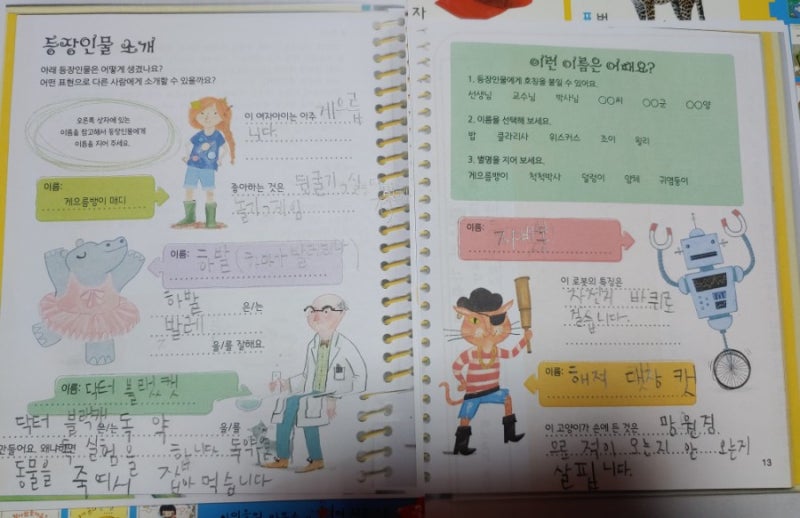 등장인물 소개
아래 등장인물은 어떻게 생겼나요?
어떤 표현으로 다른 사람에게 소개할 수 있을까요?
오른쪽 상자에 있는
이름을 참고해서 등장인물에게
이름을 지어 주세요.
이 여자아이는 아주 게으릅
니다.
이름:
게으름뱅이 매디
좋아하는 것은 뒹굴기
놀기
이름: 하발 (하마 발레리나)
하발 은/는
발레
을/를 잘해요.
이름: 닥터 블랙캣
닥터 블랙캣 은/는 독약 을/를
만들어요. 왜냐하면 독 실험을 합니다. 독약을
동물을 죽여서 잡아 먹습니다
자
표범
이런 이름은 어때요?
1. 등장인물에게 호칭을 붙일 수 있어요.
선생님 교수님 박사님 ○○씨 ○○군 ○○양
2. 이름을 선택해 보세요.
밥 클라리사 위스커스 조이 윌리
3. 별명을 지어 보세요.
게으름뱅이 척척박사 덜렁이 얌체 귀염둥이
이름: 자바봇
이 로봇의 특징은
자전거 바퀴로
걷습니다.
이름: 해적 대장 캣
이 고양이가 손에 든 것은 망원경
으로 적이 오는지 안 오는지
살핍니다.
13